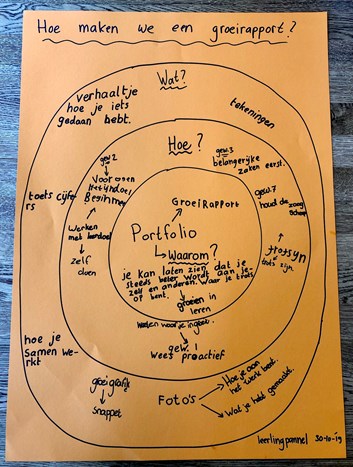 Hoe maken we een groeirapport?
Wat?
verhaaltje
hoe je iets
gedaan hebt.
tekeningen
Hoe?
gew. 2
gew. 3
belangerijke
zaken eerst.
Voor ogen
Het einddoel
Beginnen
toets cijfe
rs
gew. 7
houd de zaag
scherp
GroeiRapport
Portfolio
Waarom?
Werken
met leerdoel
zelf
doen
trots zijn
je kan laten zien dat je
steeds beter wordt aan je-
zelf en anderen. Waar je trots
op bent.
groeien
in leren
gew. 1
Wees proactief
hoe je
samen we-
rkt
groeigrafiek
snappet
Foto's
Hoe je aan
het werk bent.
Wat je hebt gemaakt.
leerlingpannel 30-10-'19